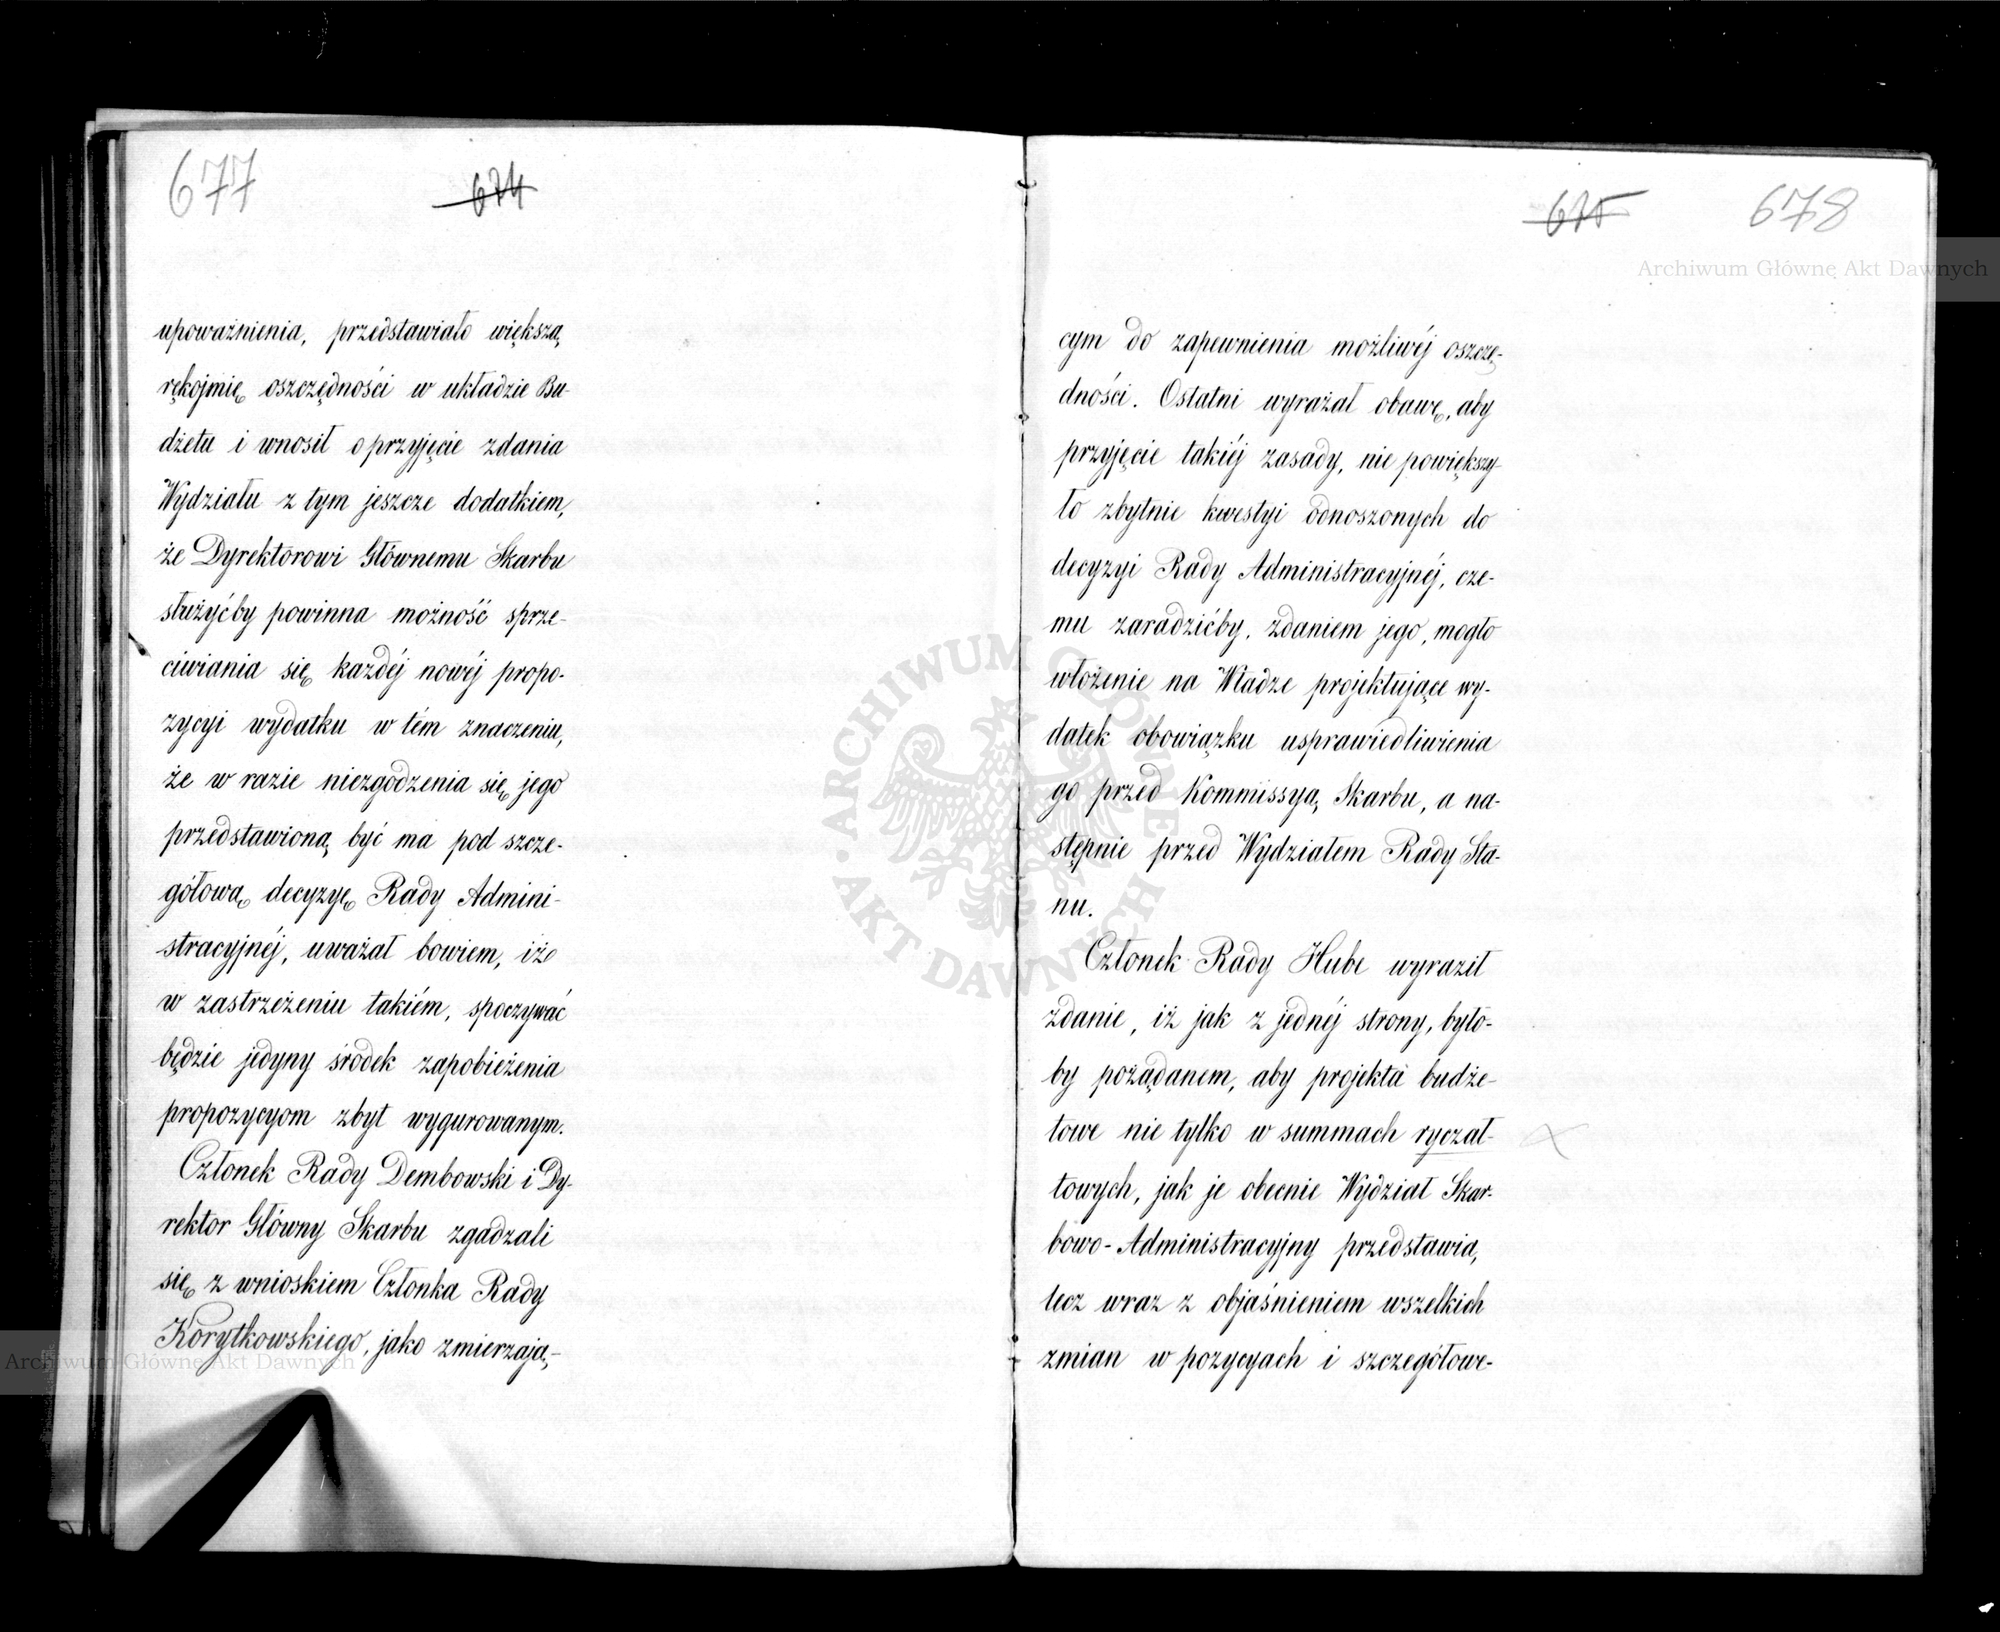 677
674
upoważnienia, przedstawiało większą
rękojmię oszczędności w układzie Bu-
dżetu i wnosił o przyjęcie zdania
Wydziału z tym jeszcze dodatkiem,
że Dyrektorowi Głównemu Skarbu
służyćby powinna możność sprze-
ciwiania się każdéj nowéj propo-
zycyi wydatku w tém znaczeniu,
że w razie niezgodzenia się jego
przedstawioną być ma pod szcze-
gółową decyzyę Rady Admini-
stracyjnéj, uważał bowiem, iż
w zastrzeżeniu takiém, spoczywać
będzie jedyny środek zapobieżenia
propozycyom zbyt wygurowanym.
Członek Rady Dembowski i Dy-
rektor Główny Skarbu zgadzali
się z wnioskiem Członka Rady
Korytkowskiego, jako zmierzają-
675
678
cym do zapewnienia możliwéj oszczę-
dności. Ostatni wyrażał obawę, aby
przyjęcie takiéj zasady, nie powiększy-
ło zbytnie kwestyi odnoszonych do
decyzyi Rady Administracyjnéj, cze-
mu zaradzićby, zdaniem jego, mogło
włożenie na Władze projektujące wy-
datek obowiązku usprawiedliwienia
go przed Kommissyą Skarbu, a na-
stępnie przed Wydziałem Rady Sta-
nu.
Członek Rady Hube wyraził
zdanie, iż jak z jednéj strony, było-
by pożądanem, aby projekta budże-
towe nie tylko w summach ryczał-
towych, jak je obecnie Wydział Skar-
bowo-Administracyjny przedstawia,
lecz wraz z objaśnieniem wszelkich
zmian w pozycyach i szczegółowe-
Archiwum Główne Akt Dawnych
ARCHIWUM GŁÓWNE
AKT DAWNYCH
Archiwum Główne Akt Dawnych